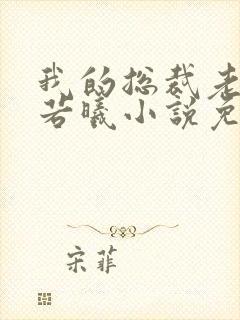 我的总裁老
若曦小说免
宋菲